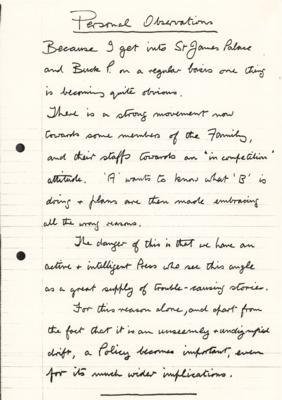 Personal Observations
Because I get into St James Palace
and Buck P. on a regular basis one thing
is becoming quite obvious.
There is a strong movement now
towards some members of the Family,
and their staffs towards an "in competition"
attitude. 'A' wants to know what 'B' is
doing & plans are then made embracing
all the wrong reasons.
The danger of this is that we have an
active & intelligent Press who see this angle
as a great supply of trouble-causing stories.
For this reason alone, and apart from
the fact that it is an unseemly & undignified
drift, a Policy becomes important, even
for its much wider implications.